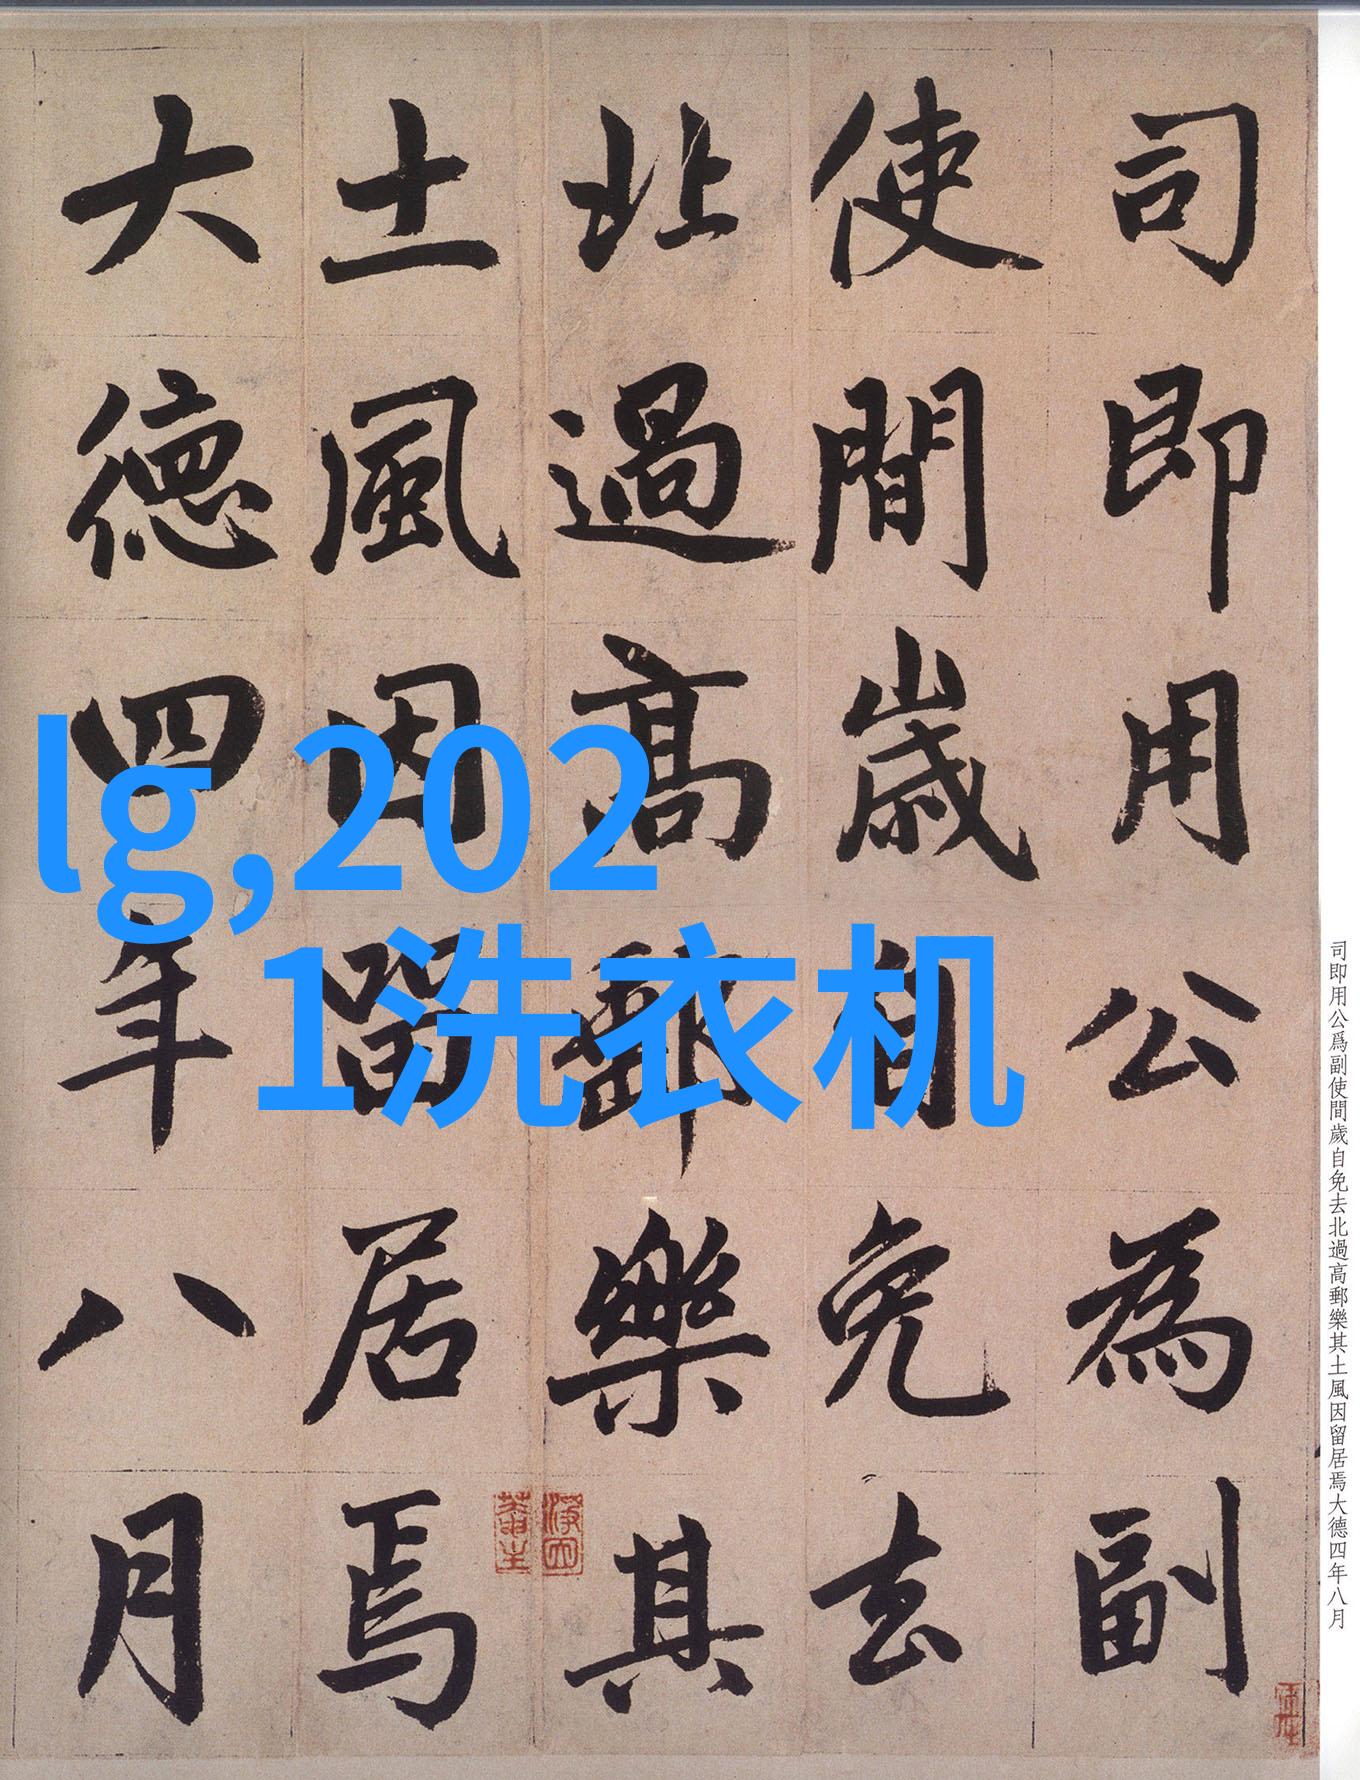 司即用公為副
使間歲自免去
北過高郵樂其
土風因留居焉
大德四年八月
lg,202
1洗衣机
司即用公爲副使間歲自免去北過高郵樂其土風因留居焉大德四年八月